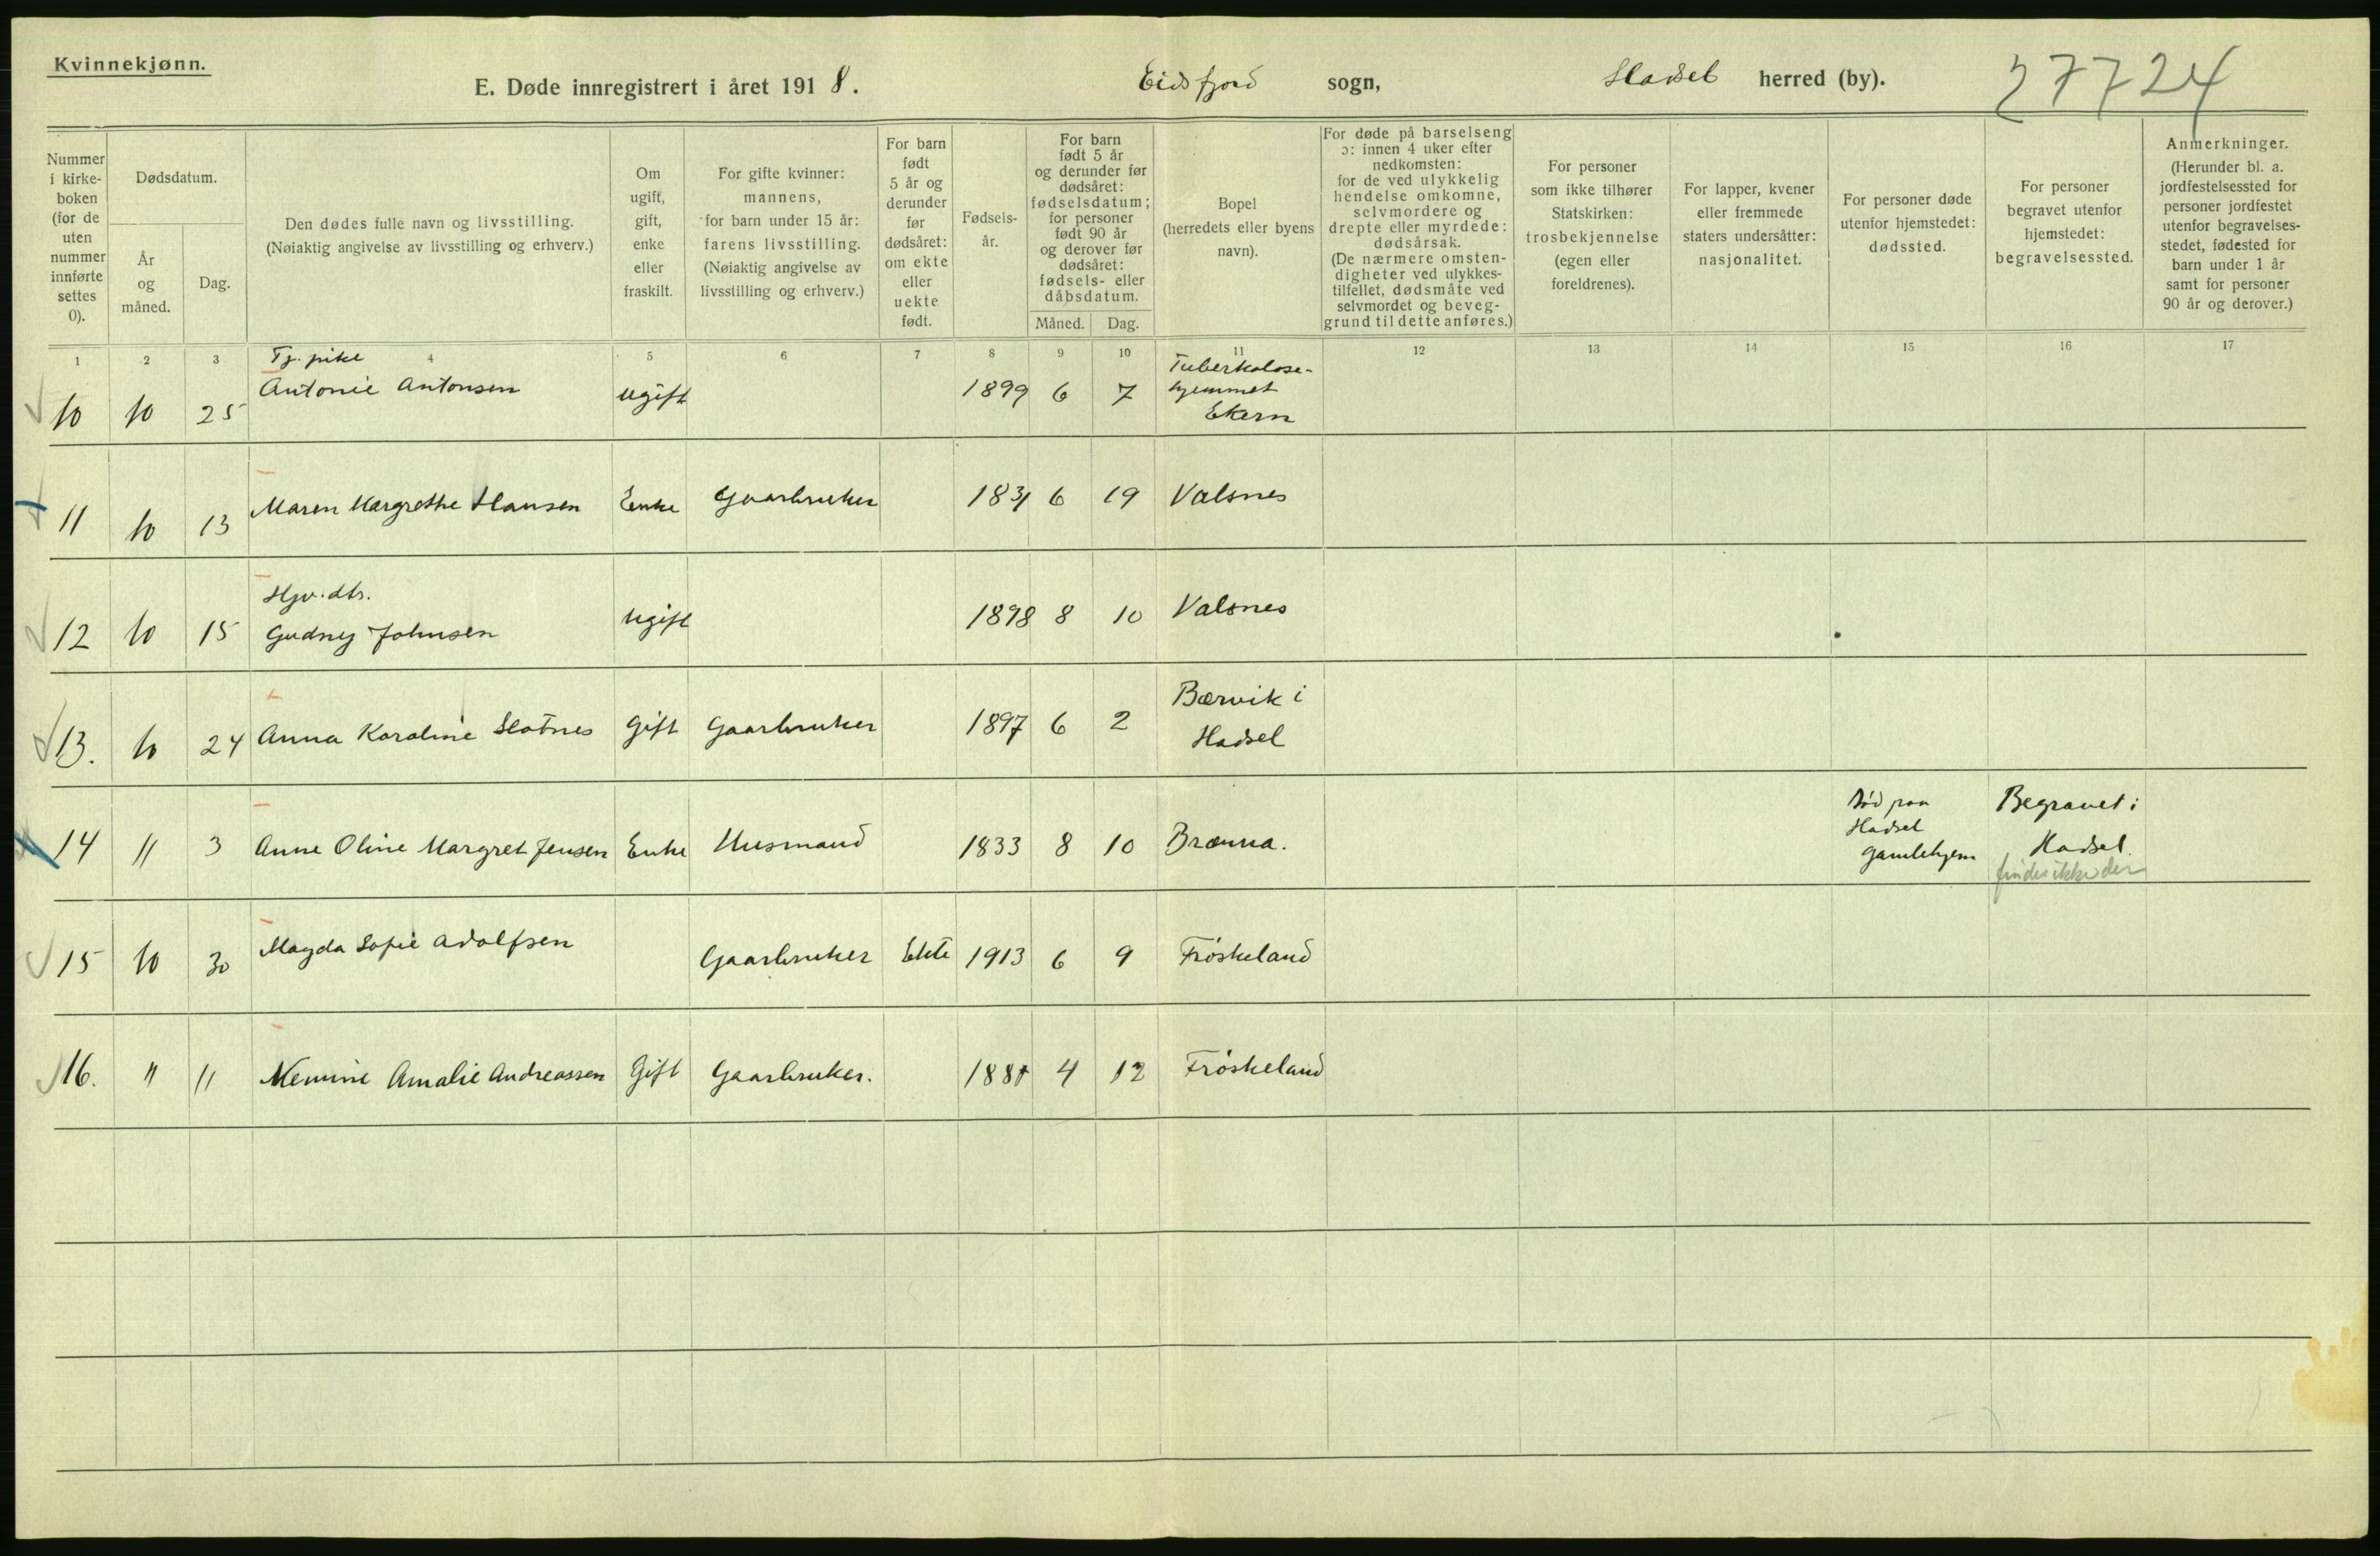 Kvinnekjønn.
E. Døde innregistrert i året 1918. Eidsfjord sogn, Hadsel herred (by). 27724
Nummer i kirke-boken (for de uten nummer innførte settes 0).
Dødsdatum.
År og måned.
Dag.
Den dødes fulle navn og livsstilling.
(Nøiaktig angivelse av livsstilling og erhverv.)
Om ugift, gift, enke eller fraskilt.
For gifte kvinner: mannens, for barn under 15 år: farens livsstilling. (Nøiaktig angivelse av livsstilling og erhverv.)
For barn født 5 år og derunder før dødsåret: om ekte eller uekte født.
Fødsels-år.
For barn født 5 år og derunder før dødsåret: fødselsdatum; for personer født 90 år og derover før dødsåret: fødsels- eller dåbsdatum.
Måned. Dag.
Bopel (herredets eller byens navn).
For døde på barselseng ɔ: innen 4 uker efter nedkomsten: for de ved ulykkelig hendelse omkomne, selvmordere og drepte eller myrdede: dødsårsak. (De nærmere omsten-digheter ved ulykkes-tilfellet, dødsmåte ved selvmordet og beveg-grund til dette anføres.)
For personer som ikke tilhører Statskirken: trosbekjennelse (egen eller foreldrenes).
For lapper, kvener eller fremmede staters undersåtter: nasjonalitet.
For personer døde utenfor hjemstedet: dødssted.
For personer begravet utenfor hjemstedet: begravelsessted.
Anmerkninger. (Herunder bl. a. jordfestelsessted for personer jordfestet utenfor begravelses-stedet, fødested for barn under 1 år samt for personer 90 år og derover.)
1 2 3 4 5 6 7 8 9 10 11 12 13 14 15 16 17
Tj. pike Tuberkulose-
10 10 25 Antonie Antonsen ugift 1899 6 7 hjemmet
Ekern
11 10 13 Maren Margrethe Hansen Enke Gaarbruker 1831 6 19 Valsnes
Hjv. dtr.
12 10 15 Gudny Johnsen ugift 1898 8 10 Valsnes
Bærvik i
13. 10 24 Anna Karoline Slotnes Gift Gaarbruker 1897 6 2 Hadsel
14 11 3 Anne Oline Margret Jensen Enke Husmand 1833 8 10 Brænna. Død paa Hadsel Gamlehjem Begravet i Hadsel.
findes ikke der
15 10 30 Magda Sofie Adolfsen Gaarbruker Ekte 1913 6 9 Frøskeland
16. " 11 Nemine Amalie Andreassen Gift Gaarbruker. 4 12 Frøskeland